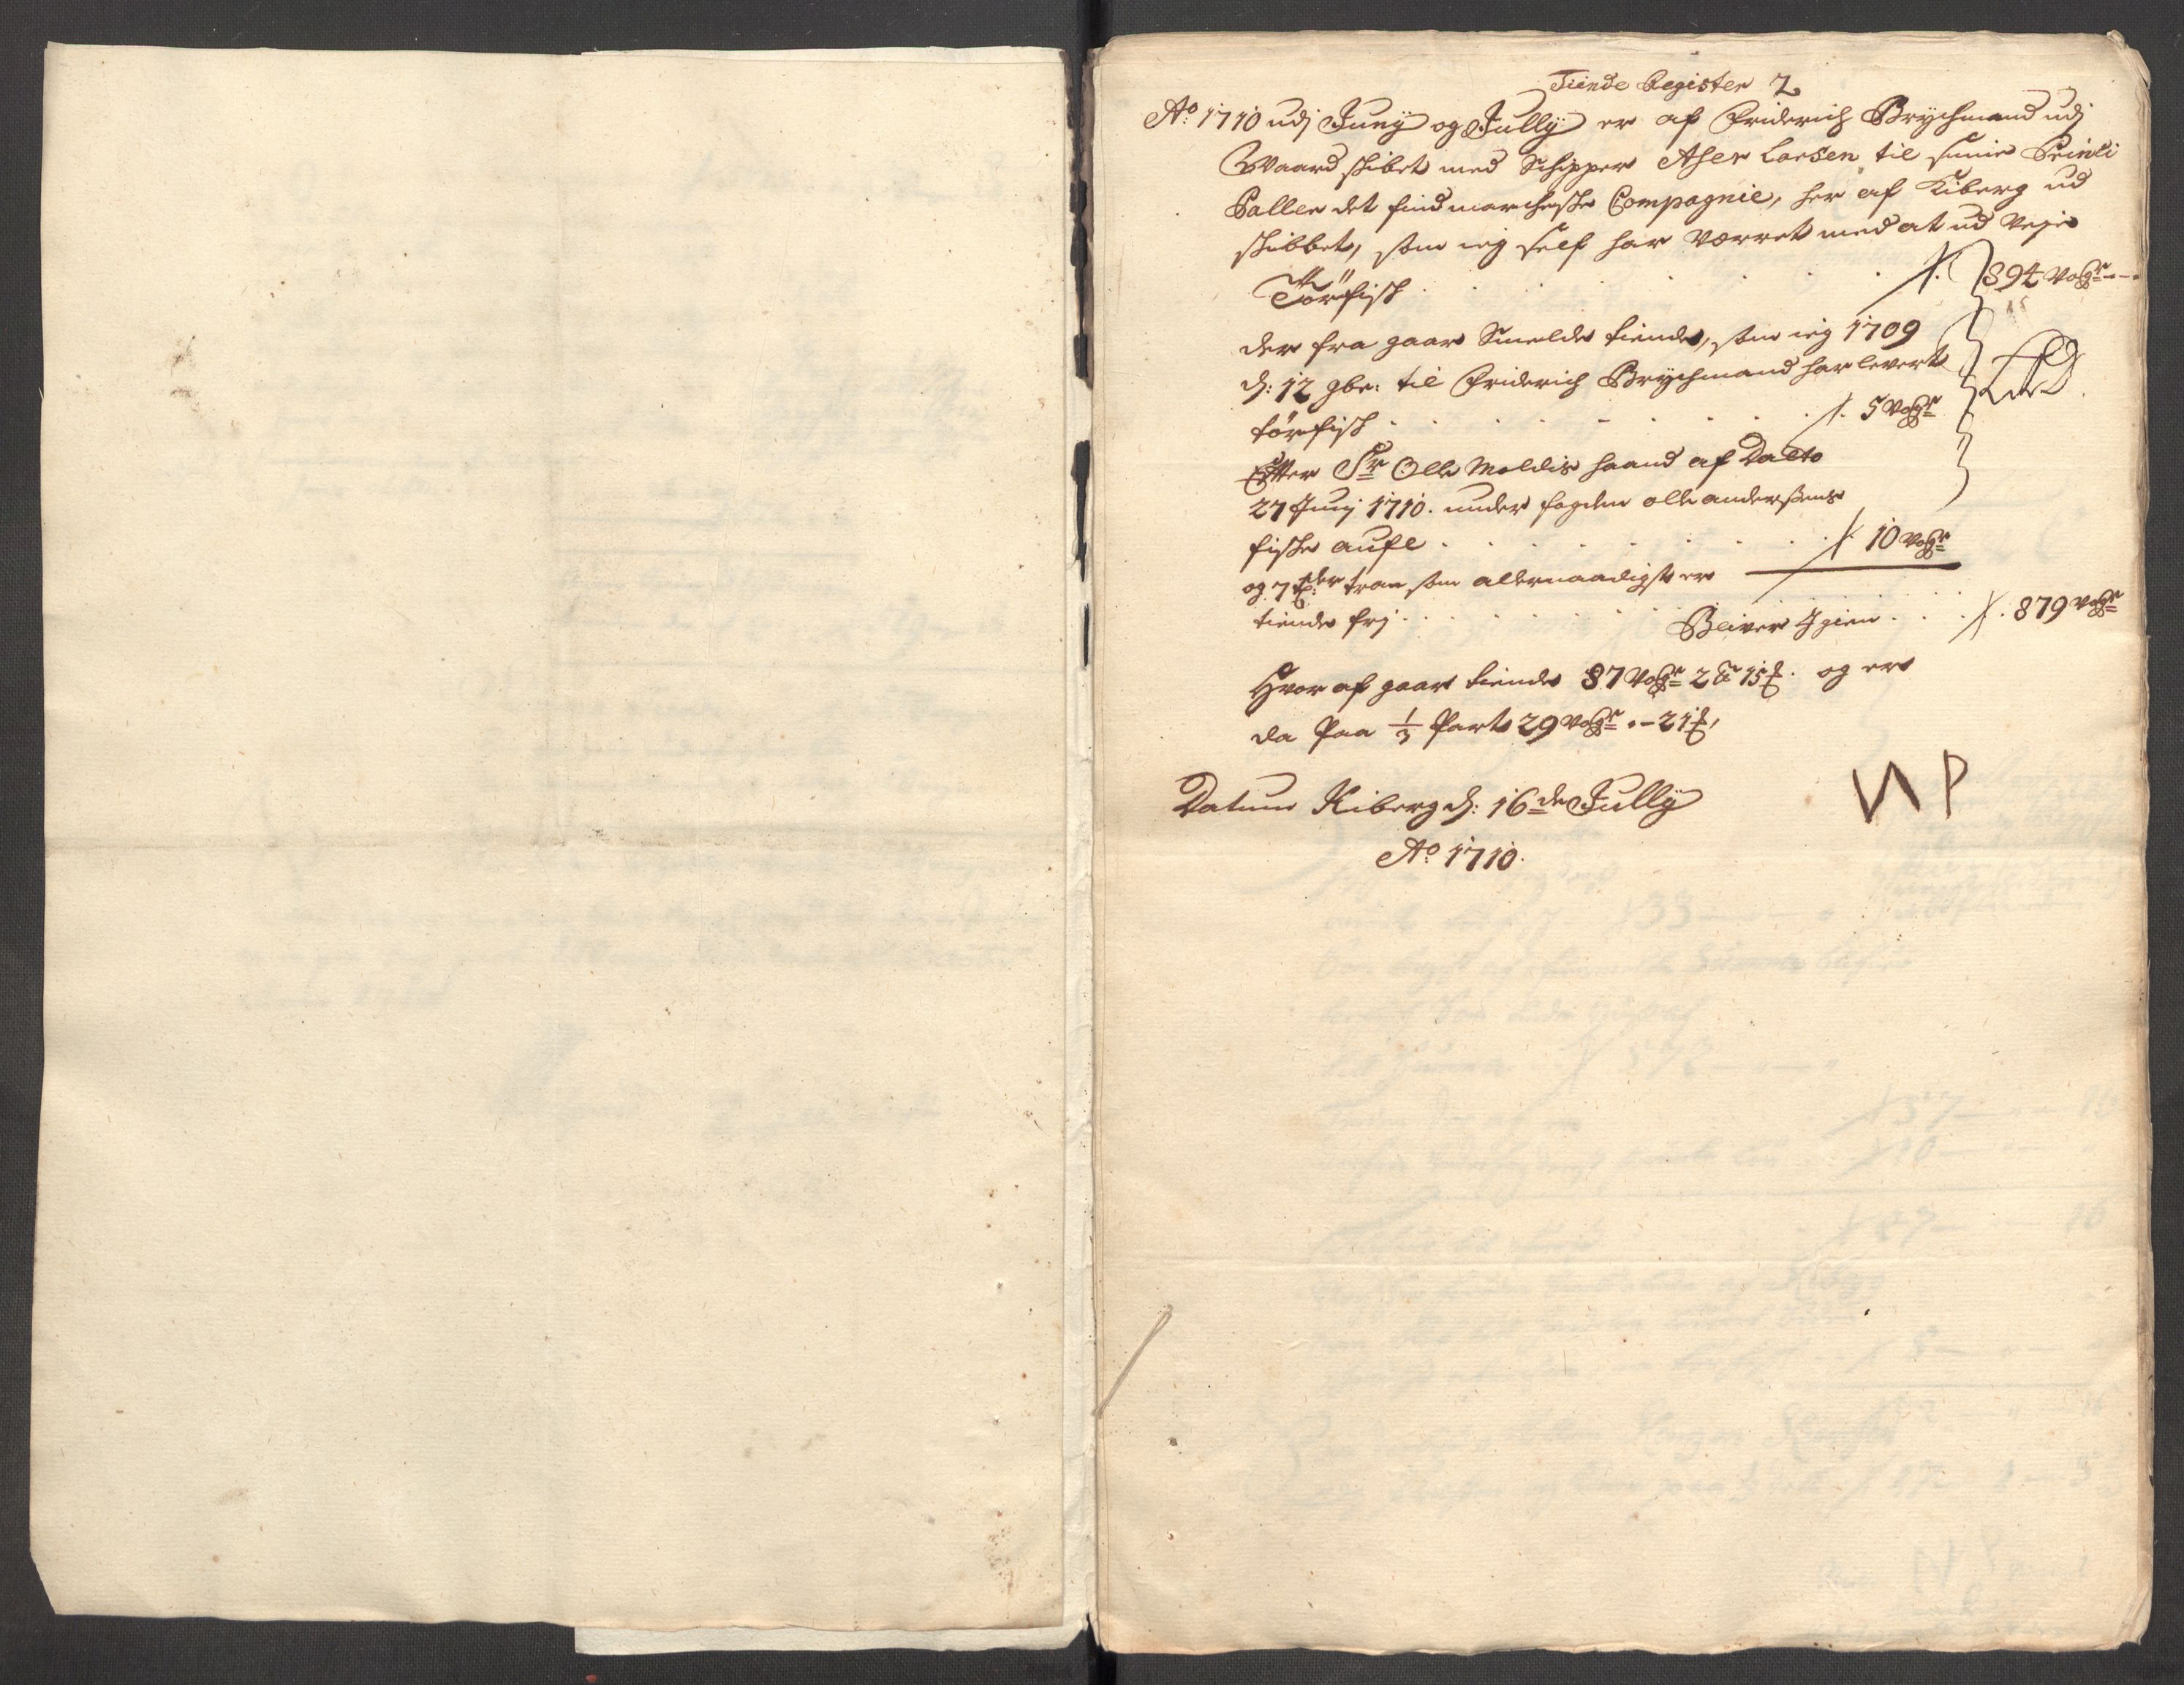 Tiende Register 2
Ao: 1710 udj Junÿ og Jullÿ er af Friderich Brÿchmand udj
Waard skibet med Schipper Aher Larsen til hinie
Pallen det findmarcheske Compagnie, her af Kiberg ud
skibbet, som ieg self har Værret med at ud Veje
Törfisk . . . . . . 894 Voger --
der fra gaar Smelde tiende, som ieg 1709
d: 12 9br: til Friderich Brÿchmand har levert
törfisk . . . . . . 5 Voger
Efter Sr Olle Moldis haand af Dato
27 Junj 1710. under fogden olle andersens
fiske aufl . . . . . . 10 Voger
og 7 tder tran som allernaadigst er
tiende frj . . . . . . Bliver Igien . . . 879 Voger
Hvor af gaar tiende 87 Voger 2 15 . og er
da Paa 1/3 Part 29 Voger - 21
Datum Kiberg d: 16de Jullÿ
Ao 1710.
N P